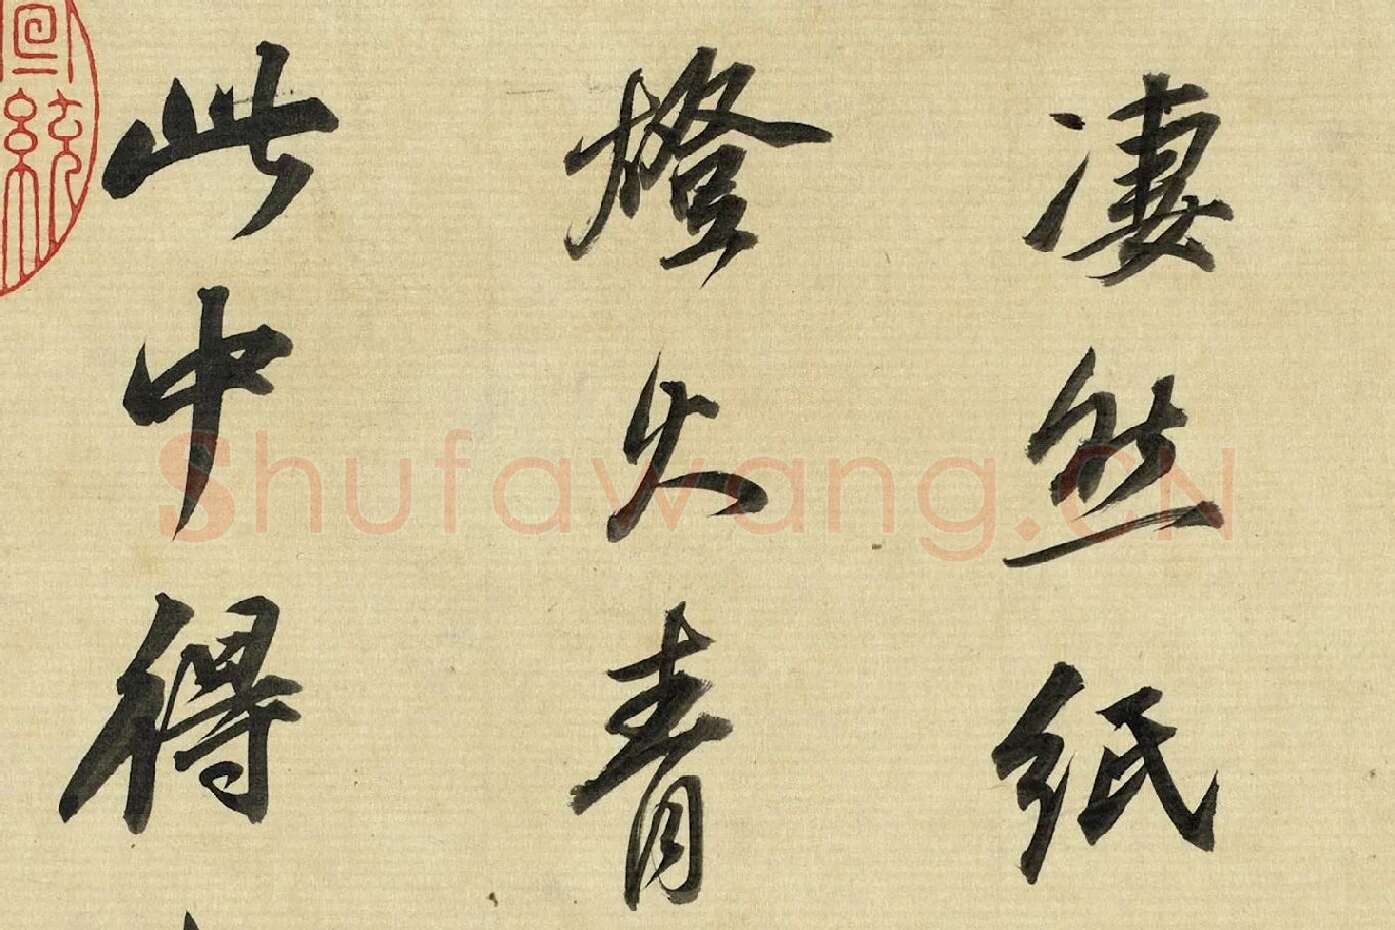 凄然紙
燈火青
此中得
統
Shufawang.CN